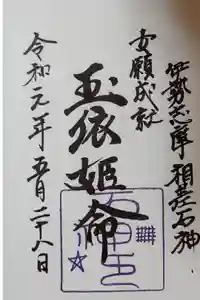 伊勢志摩 相差石神
女願成社
玉依姫命
令和元年五月二十八日